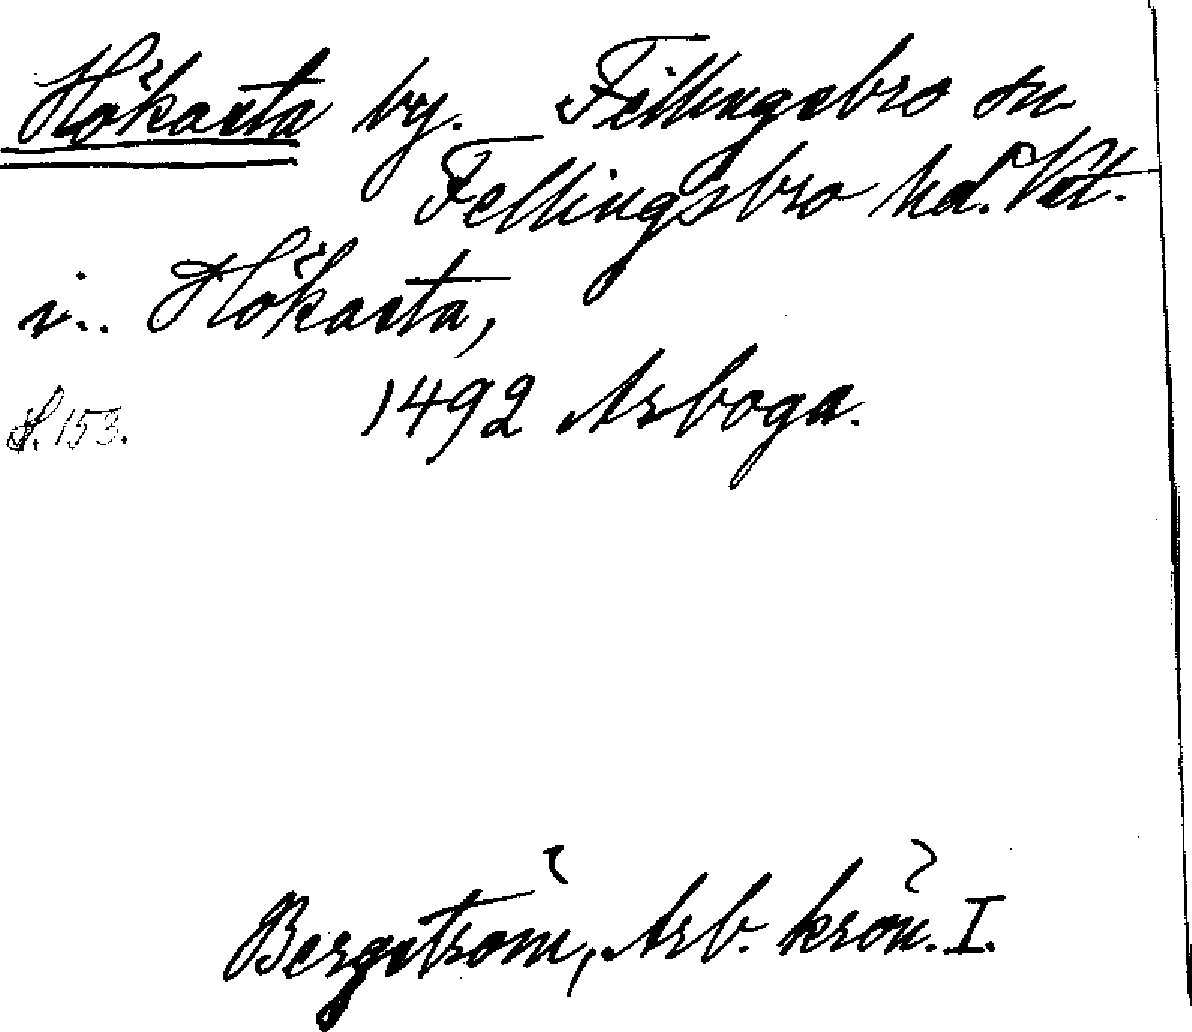 Hökasta by. Fellingsbro sn
Fellingsbro hd. Vst.
i.. Hökasta,
S. 153. 1492 Arboga.
Bergström, Arb. krön. I.